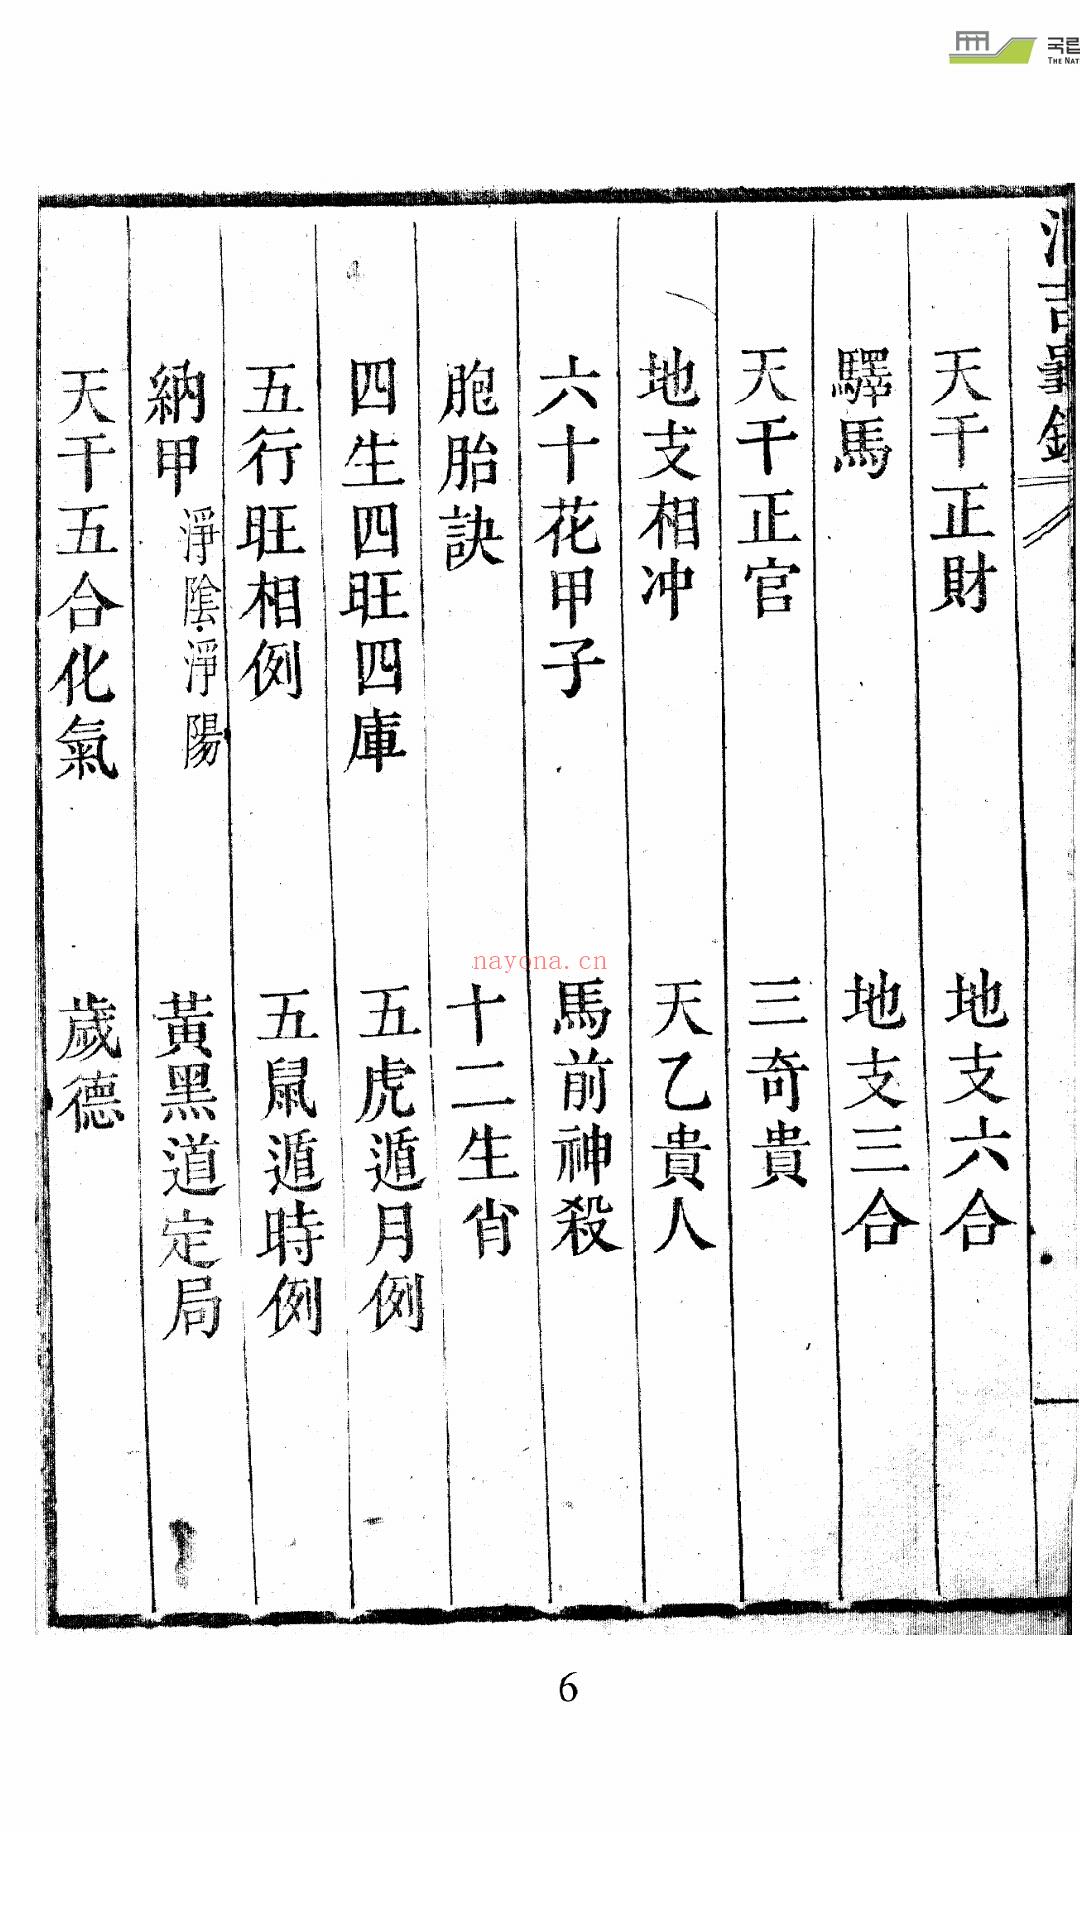 국립
THE NAT
吉彙
天干正財 地支六合
驛馬 地支三合
天干正官 三奇貴
地支相冲 天乙貴人
六十花甲子 馬前神殺
胞胎訣 十二生肖
四生四旺四庫 五虎遁月例
五行旺相例 五鼠遁時例
納甲 淨陰淨陽 黃黑道定局
天干五合化氣 歲德
一
nayona.cn
6